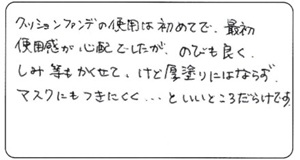 クッションファンデの使用は初めてで、最初
使用感が心配でしたが、のびも良く、
しみ等もかくせて、けど厚塗りにはならず、
マスクにもつきにくく…といいところだらけです。